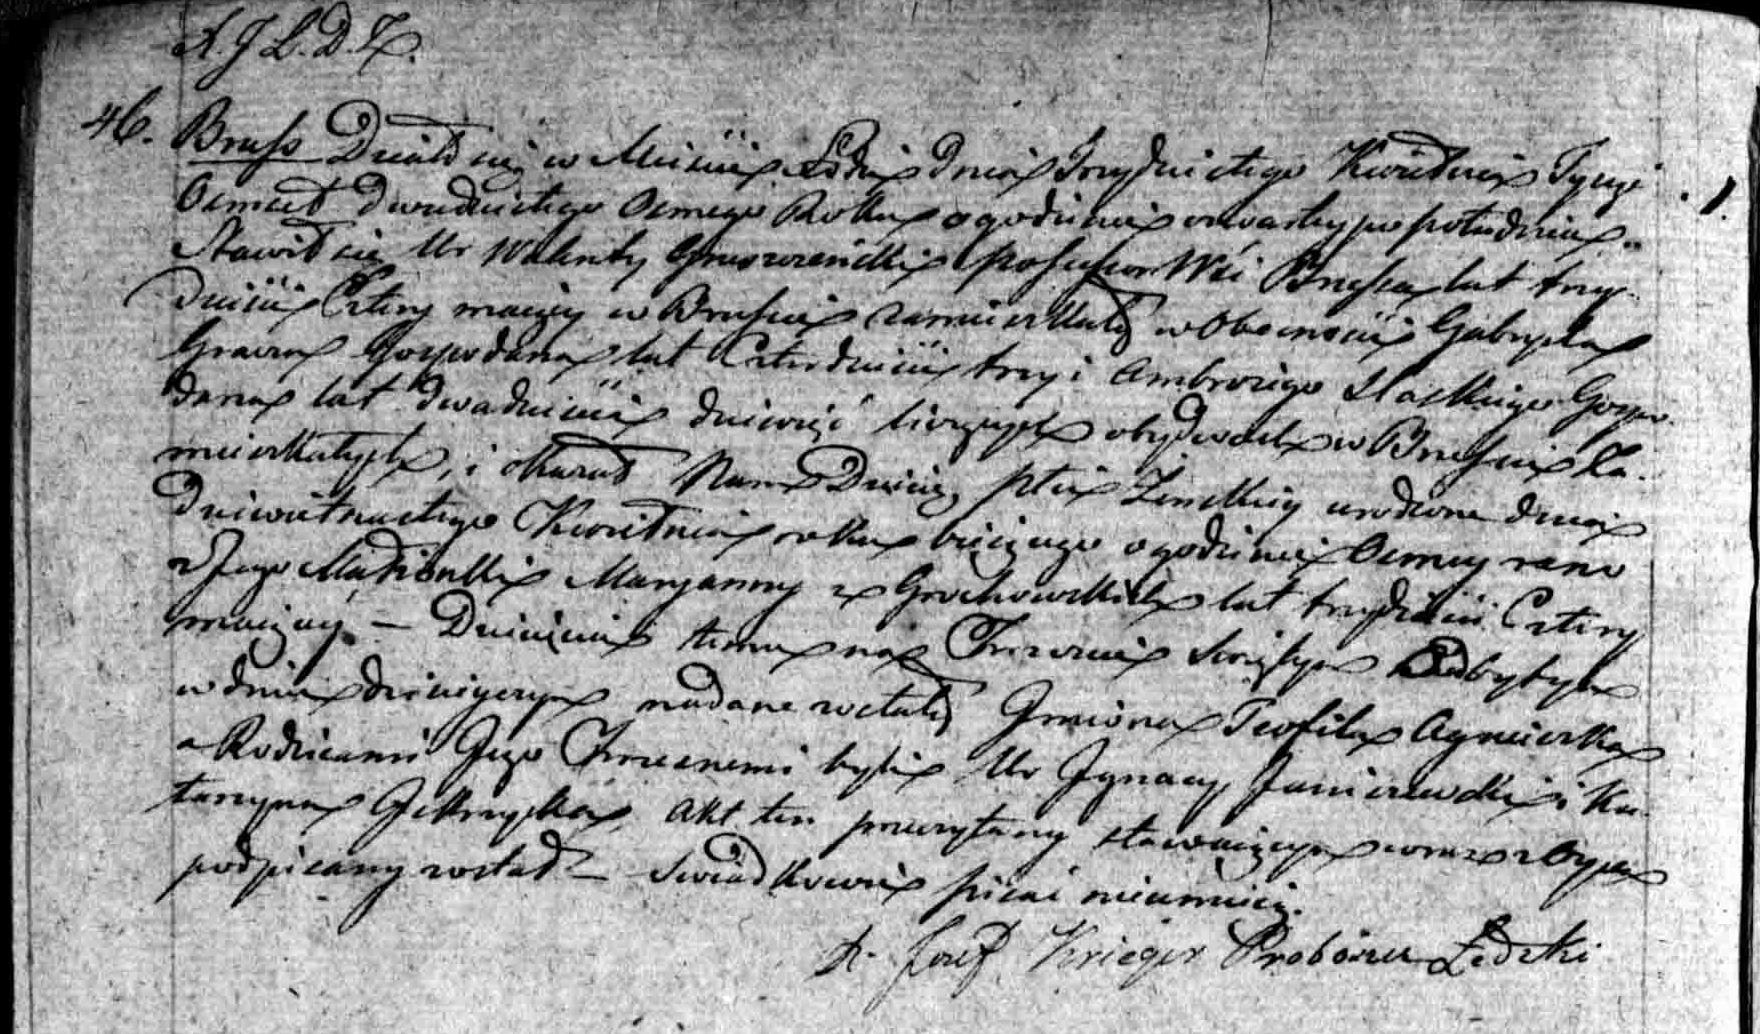 46. Bruss Działo się w Mieście Łodzi dnia Trzydziestego Kwietnia Tysiąc
Osmset dwudziestego Osmego Roku o godzinie czwartey po południu
Stawił się Ur Walenty possessor Wsi Brussa lat trzy-
dzieści Cztery maiący w Brusie zamieszkały w Obecności Gabryela
Gospodarza lat Czterdzieści trzy i Ambrożego Gospo-
darza lat dwadzieścia dziewięć liczących obydwóch w Brusie Za-
mieszkałych, i okazał Nam Dziecię płci Żeńskiey urodzone dnia
dziewietnastego Kwietnia roku bieżącego o godzinie Osmey rano
z Jego Małżonki Maryanny z Grochowskich lat trzydzieści Cztery
maiącey – Dziecięciu temu na Chrzcie świętym Odbytym
w dniu dzisieyszym nadane zostały Imiona Teofila Agnieszka
a Rodzicami Jego Chrzesnemi byli Ur Ignacy i Ka-
tarzyna Akt ten przeczytany stawaiącym wraz z Oycem
podpisany został – Świadkowie pisać nieumieią.
X. Józef Krieger Proboszcz Łodzki